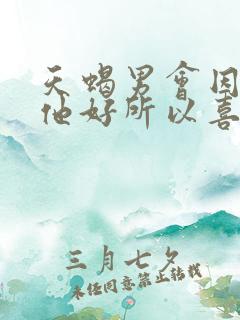 天蝎男会因
他好所以喜
三月七夕
未经同意禁止转载